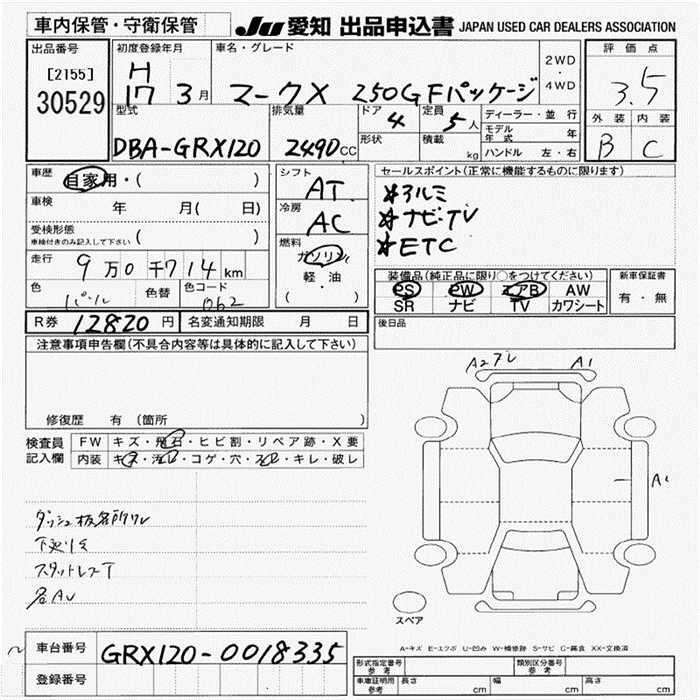 車内保管・守衛保管
JU 愛知 出品申込書 JAPAN USED CAR DEALERS ASSOCIATION
出品番号
[2155]
30529
初度登録年月
H
17 3月
車名・グレード
マークX 250G Fパッケージ
2WD
・
4WD
評価点
3.5
外装 内装
B C
型式
DBA-GRX120
排気量
2490CC
ドア
4
形状
定員
5人
積載
kg
ディーラー・並行
モデル年式 年
ハンドル 左・右
車歴
自家用・( )
車検 年 月( 日)
受検形態
車検付きのみ記入して下さい ( )
走行
9万0千714km
色
パール
色替
色コード
062
シフト
AT
冷房
AC
燃料
ガソリン
軽・油
( )
セールスポイント(正常に機能するものに限ります)
*アルミ
*ナビTV
*ETC
装備品(純正品に限り○をつけてください)
PS PW エアB AW
SR ナビ TV カワシート
新車保証書
有・無
R券 12820円
名変通知期限 月 日
後日品
注意事項申告欄(不具合内容等は具体的に記入して下さい)
修復歴 有 (箇所 )
検査員
記入欄
FW キズ・飛石・ヒビ割・リペア跡・X要
内装 キズ・汚レ・コゲ・穴・スレ・キレ・破レ
下廻りキ
各AU
A2 A1
A1
スペア
A-キズ E-エクボ U-凹み W-補修跡 S-サビ C-腐食 XX-交換済
車台番号
GRX120-0018335
登録番号
形式指定番号
参考
類別区分番号
参考
車庫証明用
参考
長さ cm
幅 cm
高さ cm